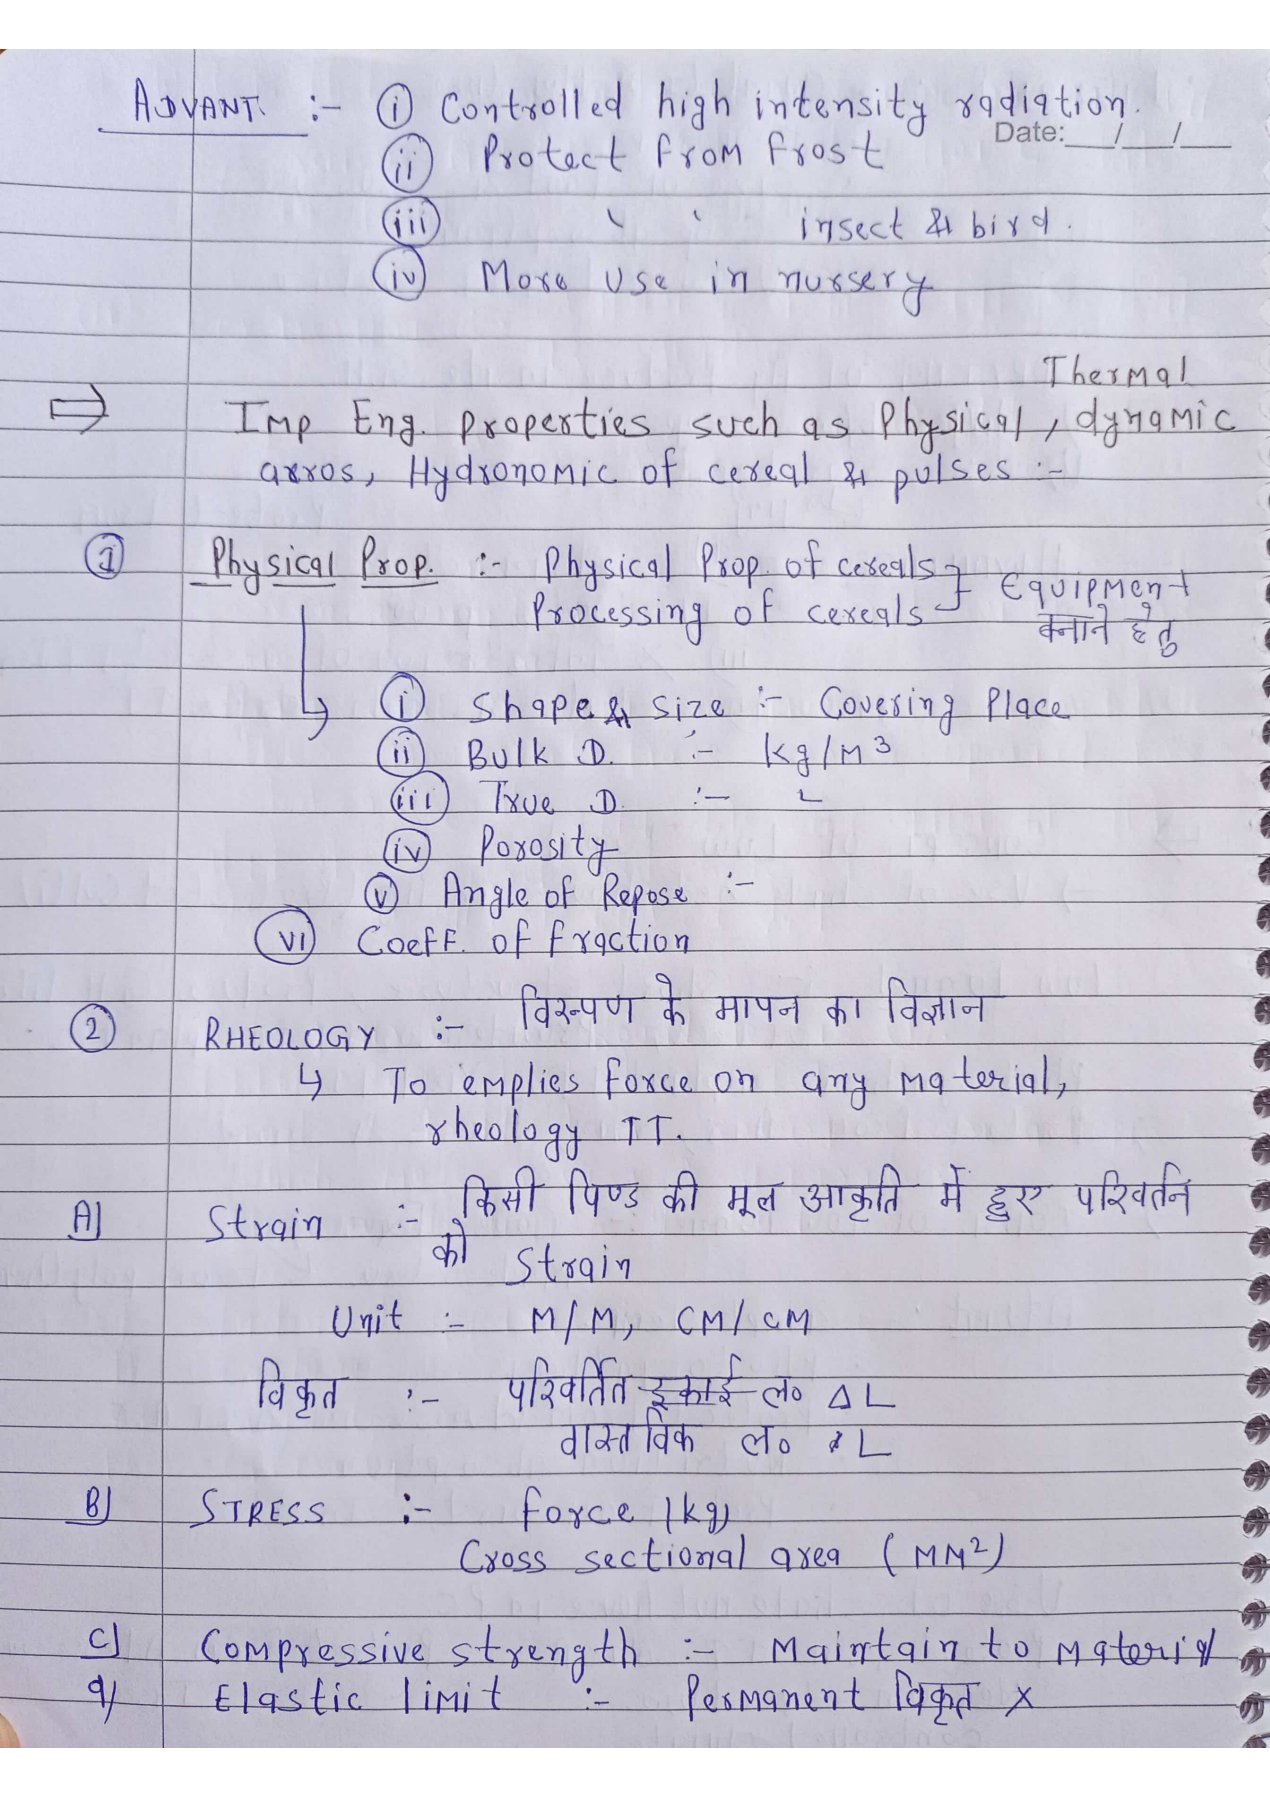 ADVANT. :- (i) Controlled high intensity radiation.
Date: __/__/__
(ii) Protect from frost
(iii) " " insect & bird.
(iv) More use in nursery
Thermal
⇒ Imp Eng. properties such as Physical, dynamic
arros, Hydronomic of cereal & pulses :-
(1) Physical Prop. :- Physical Prop. of cereals } Equipment
Processing of cereals बनाने हेतु
(i) Shape & Size :- Covering Place
(ii) Bulk D. :- kg/m³
(iii) True D. :- "
(iv) Porosity
(v) Angle of Repose :-
(vi) Coeff. of fraction
(2) RHEOLOGY :- विरूपण के मापन का विज्ञान
↳ To emplies force on any material,
rheology TT.
A) Strain :- किसी पिण्ड की मूल आकृति में हुए परिवर्तन
को Strain
Unit :- M/M, CM/CM
विकृत :- परिवर्तित इकाई ल० ΔL
वास्तविक ल० L
B) STRESS :- force (kg)
Cross sectional area (MM²)
C) Compressive strength :- Maintain to material
a) Elastic limit :- Permanent विकृत X